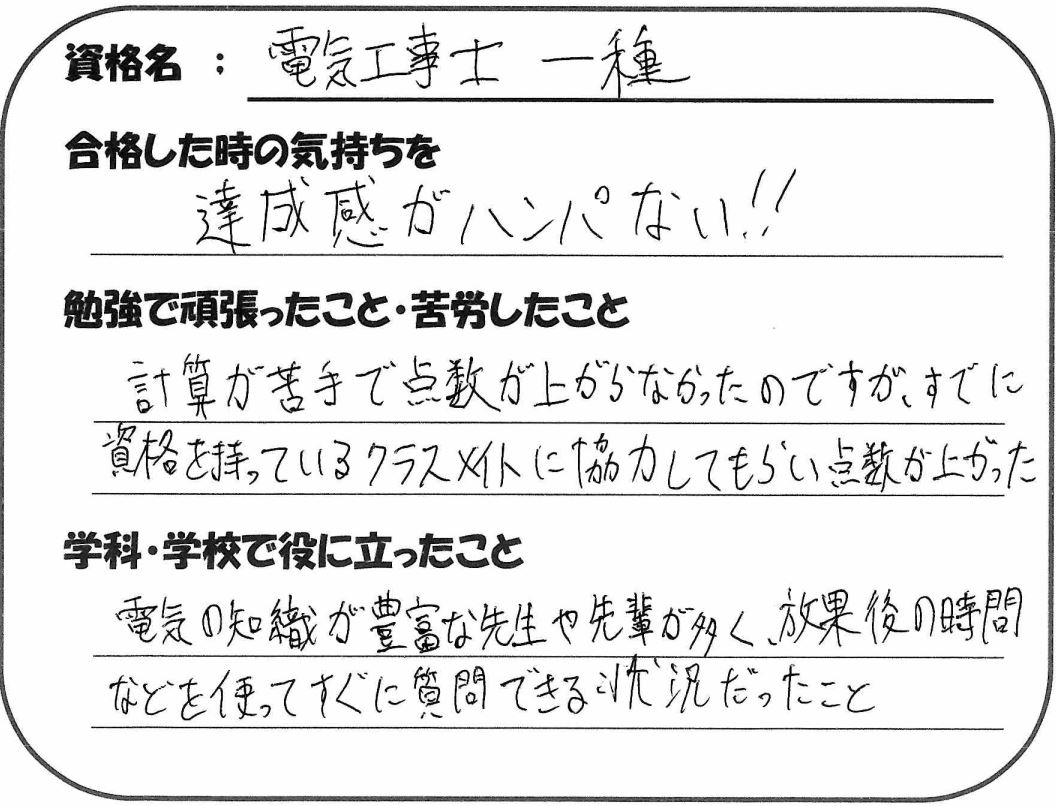 資格名 : 電気工事士 一種
合格した時の気持ちを
達成感がハンパない!!
勉強で頑張ったこと・苦労したこと
計算が苦手で点数が上がらなかったのですが、すでに
資格を持っているクラスメイトに協力してもらい点数が上がった
学科・学校で役に立ったこと
電気の知織が豊富な先生や先輩が多く、放果後の時間
などを使ってすぐに質問できる状況だったこと